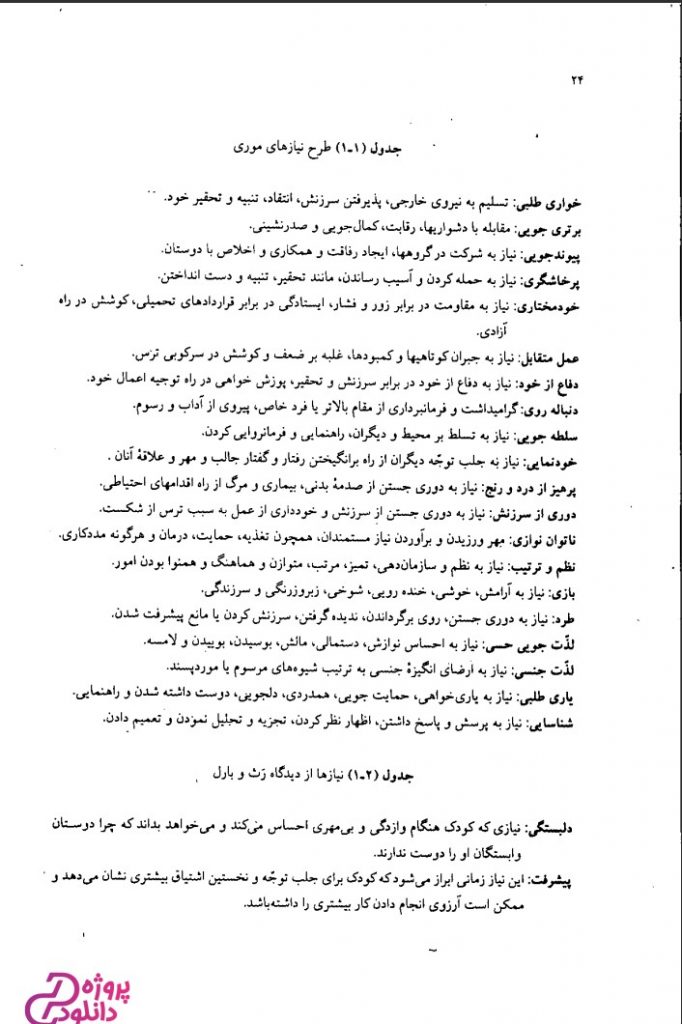 ۲۴
جدول (۱-۱) طرح نیازهای موری
خواری طلبی: تسلیم به نیروی خارجی، پذیرفتن سرزنش، انتقاد، تنبیه و تحقیر خود.
برتری جویی: مقابله با دشواریها، رقابت، کمال‌جویی و صدرنشینی.
پیوندجویی: نیاز به شرکت در گروهها، ایجاد رفاقت و همکاری و اخلاص با دوستان.
پرخاشگری: نیاز به حمله کردن و آسیب رساندن، مانند تحقیر، تنبیه و دست انداختن.
خودمختاری: نیاز به مقاومت در برابر زور و فشار، ایستادگی در برابر قراردادهای تحمیلی، کوشش در راه
آزادی.
عمل متقابل: نیاز به جبران کوتاهیها و کمبودها، غلبه بر ضعف و کوشش در سرکوبی ترس.
دفاع از خود: نیاز به دفاع از خود در برابر سرزنش و تحقیر، پوزش خواهی در راه توجیه اعمال خود.
دنباله روی: گرامیداشت و فرمانبرداری از مقام بالاتر یا فرد خاص، پیروی از آداب و رسوم.
سلطه جویی: نیاز به تسلط بر محیط و دیگران، راهنمایی و فرمانروایی کردن.
خودنمایی: نیاز به جلب توجّه دیگران از راه برانگیختن رفتار و گفتار جالب و مهر و علاقهٔ آنان .
پرهیز از درد و رنج: نیاز به دوری جستن از صدمهٔ بدنی، بیماری و مرگ از راه اقدامهای احتیاطی.
دوری از سرزنش: نیاز به دوری جستن از سرزنش و خودداری از عمل به سبب ترس از شکست.
ناتوان نوازی: مهر ورزیدن و برآوردن نیاز مستمندان، همچون تغذیه، حمایت، درمان و هرگونه مددکاری.
نظم و ترتیب: نیاز به نظم و سازمان‌دهی، تمیز، مرتب، متوازن و هماهنگ و همنوا بودن امور.
بازی: نیاز به آرامش، خوشی، خنده رویی، شوخی، زبروزرنگی و سرزندگی.
طرد: نیاز به دوری جستن، روی برگرداندن، ندیده گرفتن، سرزنش کردن یا مانع پیشرفت شدن.
لذّت جویی حسی: نیاز به احساس نوازش، دستمالی، مالش، بوسیدن، بوییدن و لامسه.
لذّت جنسی: نیاز به ارضای انگیزهٔ جنسی به ترتیب شیوه‌های مرسوم یا موردپسند.
یاری طلبی: نیاز به یاری‌خواهی، حمایت جویی، همدردی، دلجویی، دوست داشته شدن و راهنمایی.
شناسایی: نیاز به پرسش و پاسخ داشتن، اظهار نظر کردن، تجزیه و تحلیل نمودن و تعمیم دادن.
جدول (۲-۱) نیازها از دیدگاه رَث و بارل
دلبستگی: نیازی که کودک هنگام وازدگی و بی‌مهری احساس می‌کند و می‌خواهد بداند که چرا دوستان
وابستگان او را دوست ندارند.
پیشرفت: این نیاز زمانی ابراز می‌شود که کودک برای جلب توجّه و نخستین اشتیاق بیشتری نشان می‌دهد و
ممکن است آرزوی انجام دادن کار بیشتری را داشته‌باشد.
پروژه
دانلود